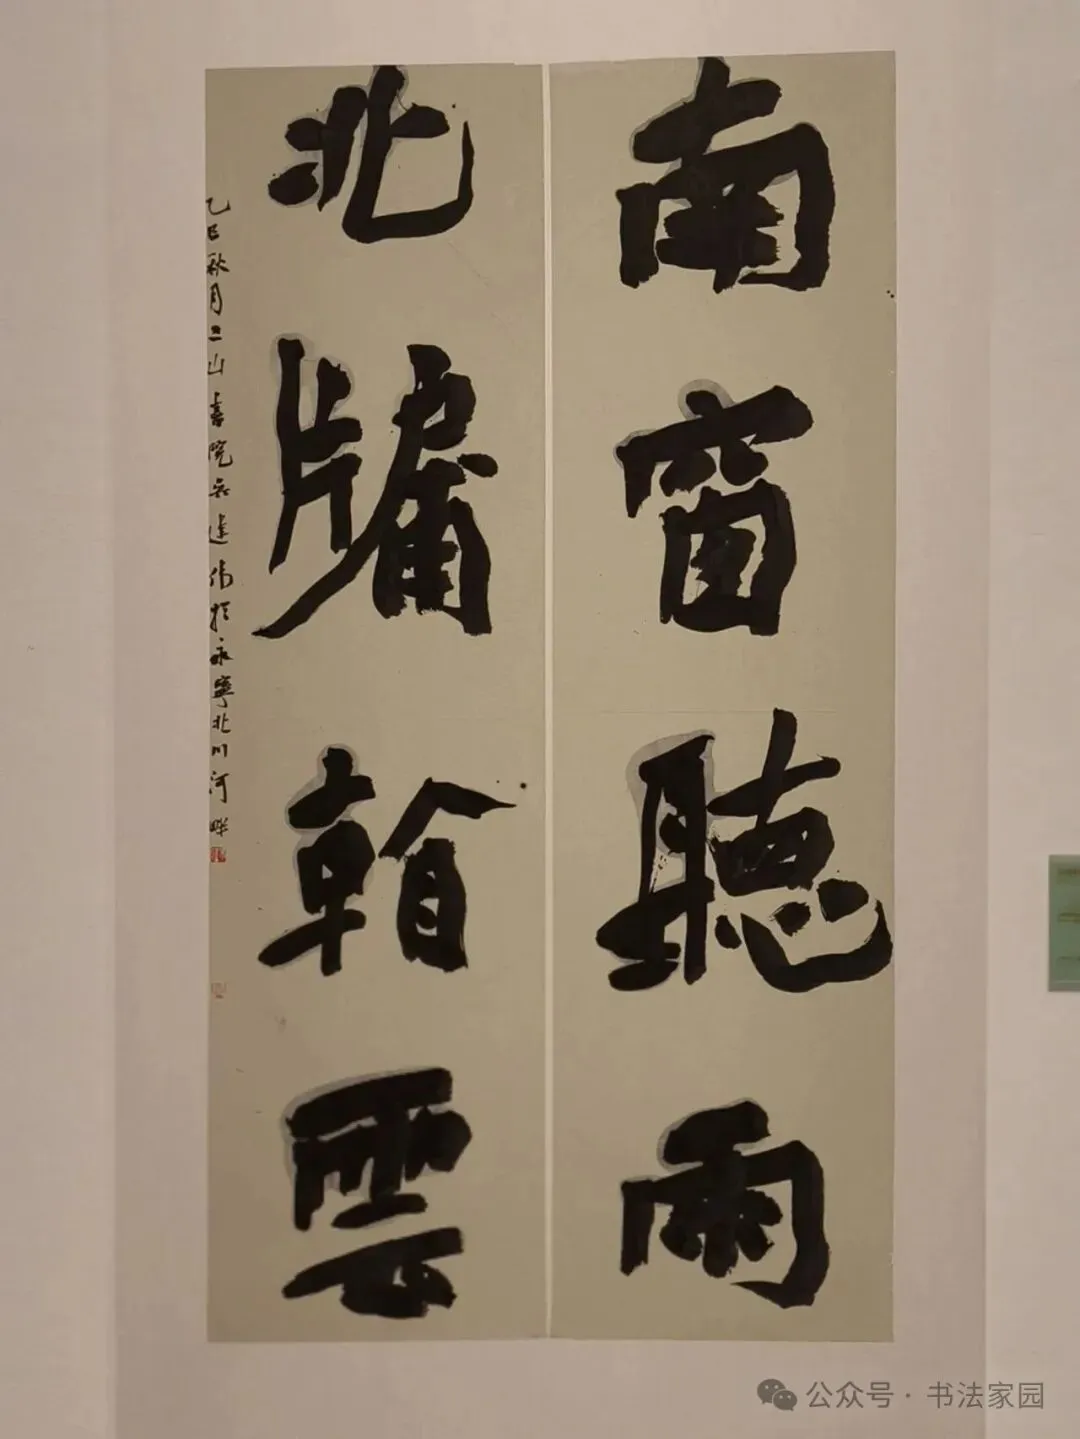 南窗聽雨
北牖翰雲
乙巳秋月三山書院 建偉於永寧北川河畔
公众号 · 书法家园